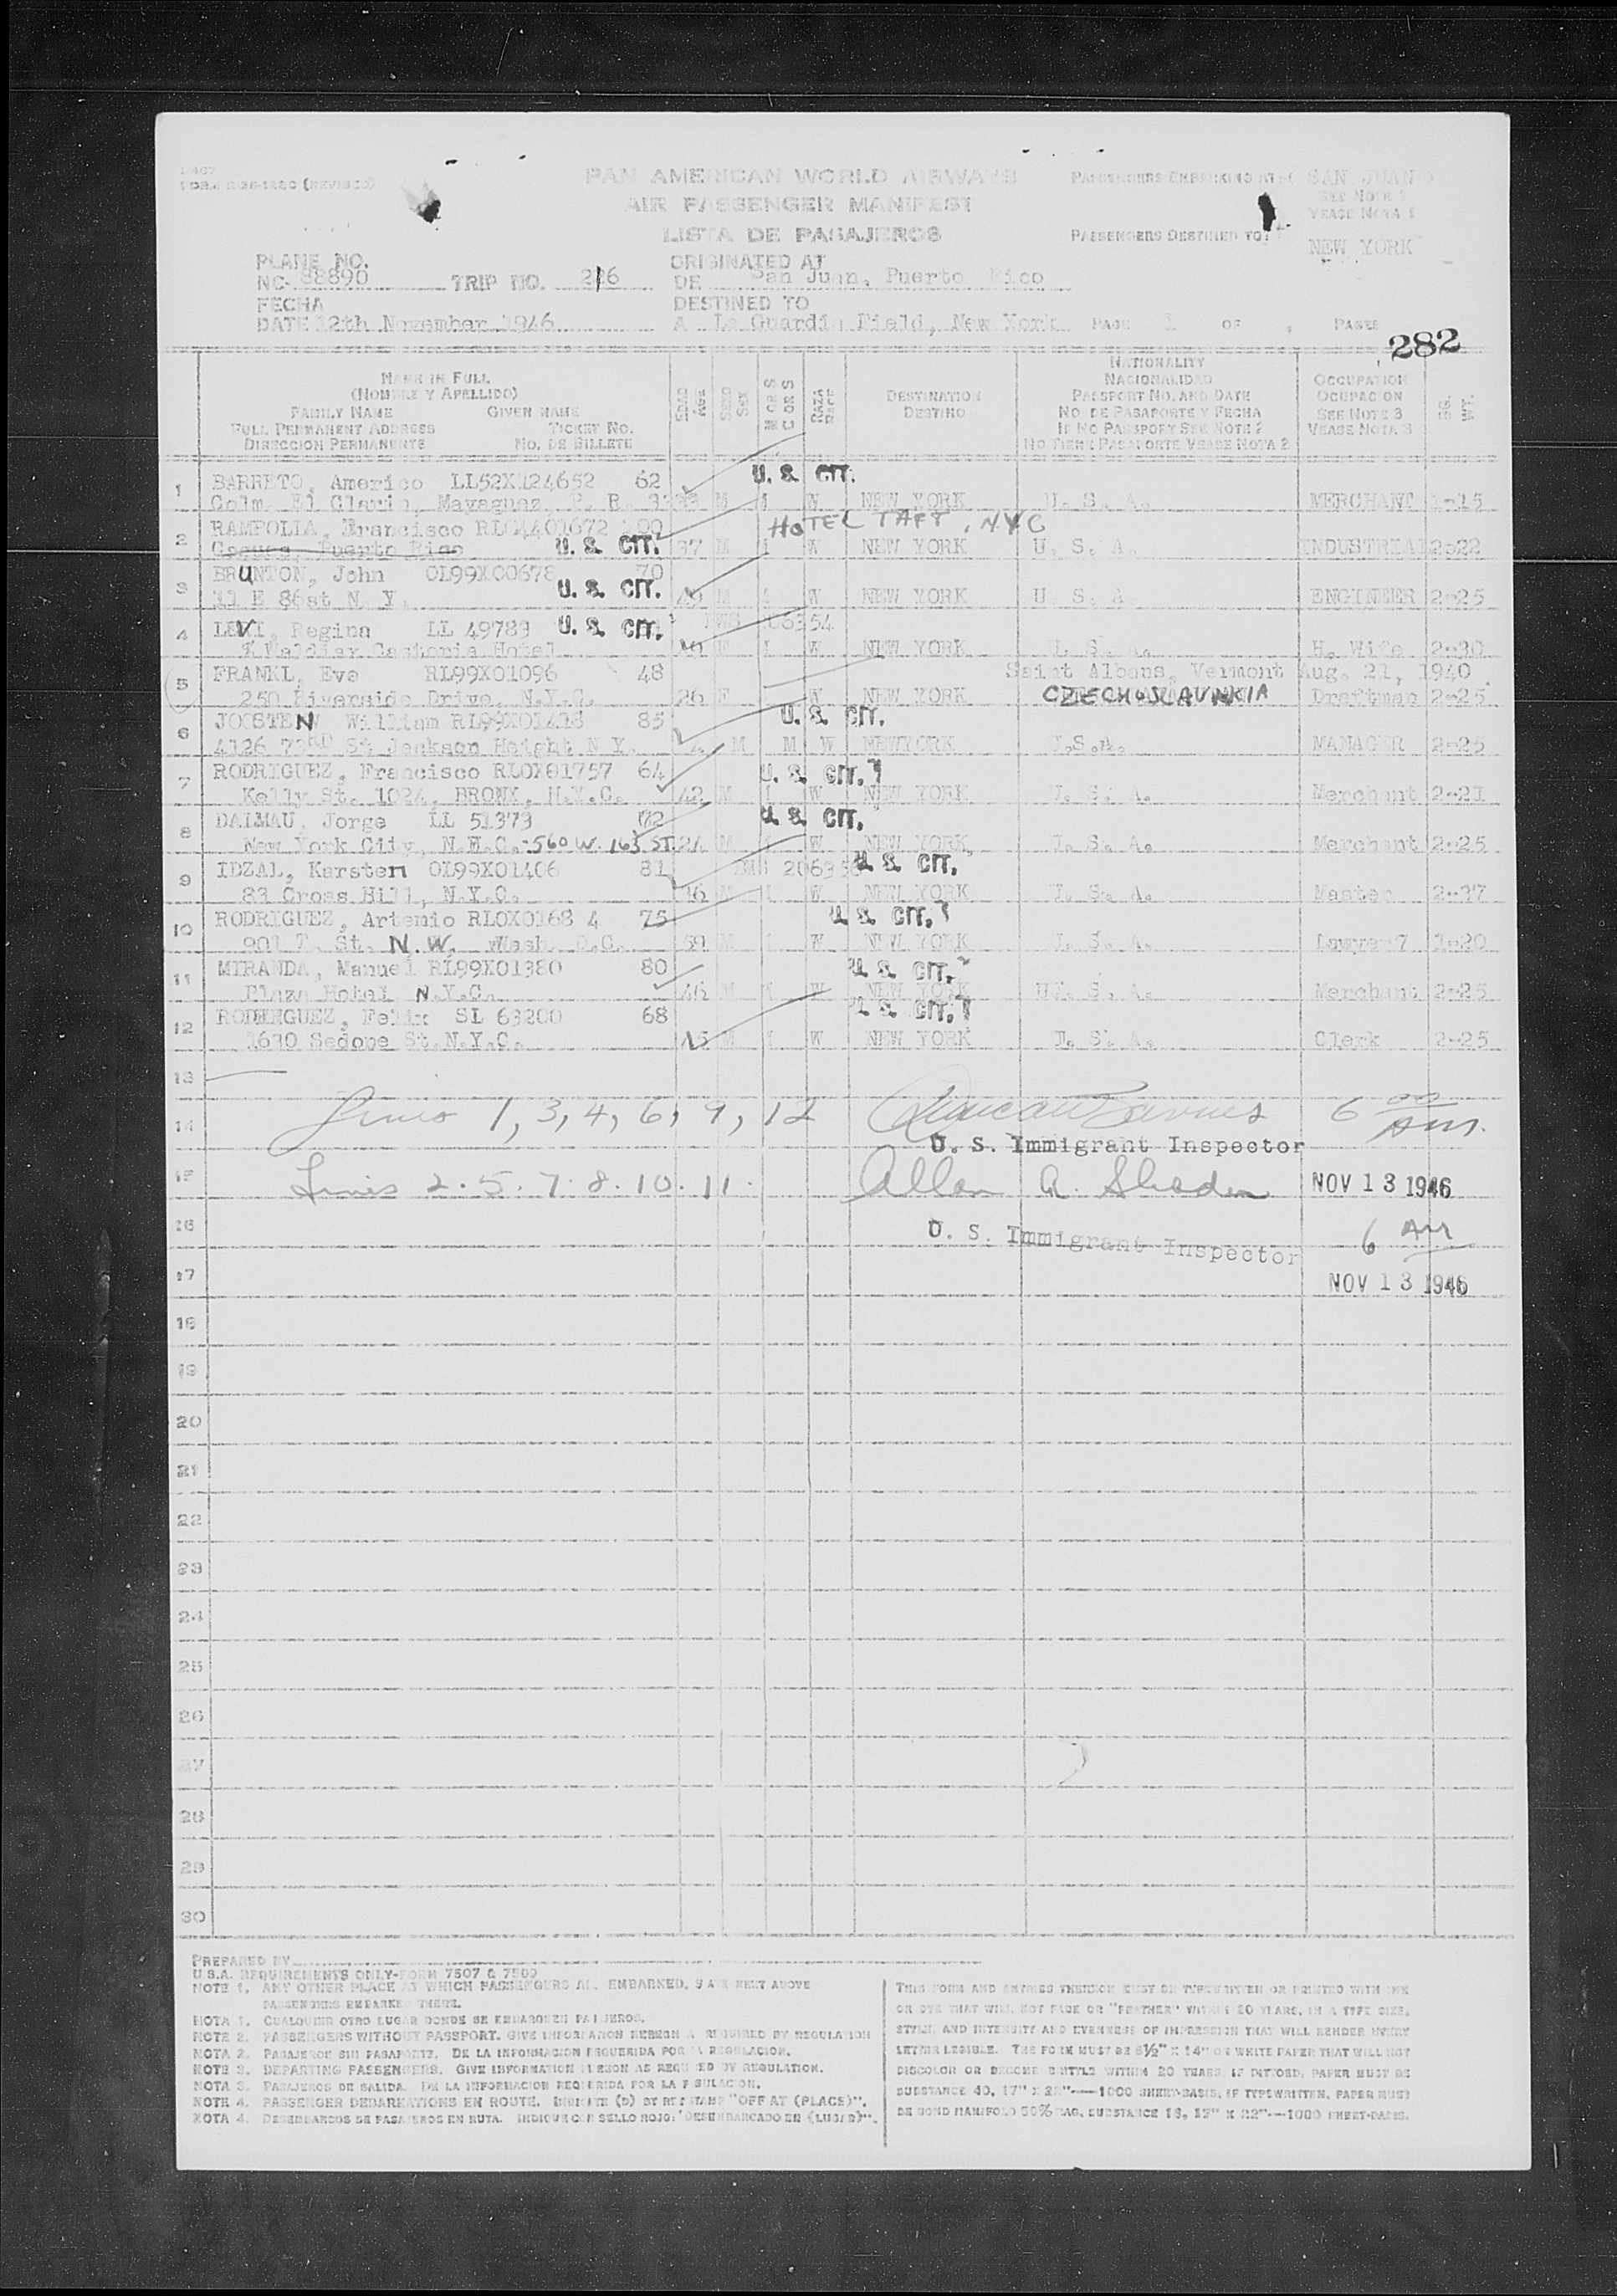 FORM (REVISED)
PAN AMERICAN WORLD AIRWAYS
AIR PASSENGER MANIFEST
LISTA DE PASAJEROS
PASSENGERS EMBARKING AT SAN JUAN
SEE NOTE 1
VEASE NOTA 1
PASSENGERS DESTINED TO: NEW YORK
PLANE NO.
NC- 88890 TRIP NO. 216
ORIGINATED AT
DE San Juan, Puerto Rico
FECHA
DATE 12th November 1946
DESTINED TO
A La Guardia Field, New York PAGE 1 OF PAGES
282
NAME IN FULL
(NOMBRE Y APELLIDO)
FAMILY NAME GIVEN NAME
FULL PERMANENT ADDRESS TICKET NO.
DIRECCION PERMANENTE NO. DE BILLETE
EDAD AGE
SEXO SEX
M OR S
C OR S
RAZA RACE
DESTINATION
DESTINO
NATIONALITY
NACIONALIDAD
PASSPORT NO. AND DATE
NO. DE PASAPORTE Y FECHA
IF NO PASSPORT SEE NOTE 2
NO TIENE PASAPORTE VEASE NOTA 2
OCCUPATION
OCUPACION
SEE NOTE 3
VEASE NOTA 3
WT.
1 BARRETO, Americo LL52X124652 62 U. S. CIT.
Colm. El Clarin, Mayaguez, P. R. M W NEW YORK U. S. A. MERCHANT 1-15
2 RAMFOLIA, Francisco HOTEL TAFT, NYC
Caguas, Puerto Rico U. S. CIT. 37 M W NEW YORK U. S. A. INDUSTRIAL 2-22
3 BRUNTON, John OL99X00678 70
11 E 86st N. Y. U. S. CIT. M NEW YORK U. S. A. ENGINEER 2-25
4 LEVI, Regina LL 49783 U. S. CIT.
Hotel F W NEW YORK U. S. A. H. Wife 2-30
5 FRANKL, Eva RL99X01096 48 Saint Albans, Vermont Aug. 21, 1940
250 Riverside Drive, N.Y.C. 26 F W NEW YORK CZECHOSLAVAKIA Draftman 2-25
6 JOOSTEN William RL99X01418 85 U. S. CIT.
4126 73RD St Jackson Height N Y. M M W NEWYORK U.S.A. MANAGER 2-25
7 RODRIGUEZ, Francisco RLOX01757 64 U. S. CIT.
Kelly St. 1024, BRONX, N.Y.C. 42 M W NEW YORK U. S. A. Merchant 2-21
8 DALMAU, Jorge LL 51373 72 U. S. CIT.
New York City, N.Y.C.-560 W. 163 ST. 24 M W NEW YORK, U. S. A. Merchant 2-25
9 IDZAL, Karsten OL99X01406 81 U. S. CIT.
83 Cross Hill, N.Y.C. 46 M W NEW YORK U. S. A. Master 2-37
10 RODRIGUEZ, Artenio RLOX0168 4 75 U. S. CIT.
901 St. N.W. Wash. D.C. 59 M W NEW YORK U. S. A. Lawyer 1-20
11 MIRANDA, Manuel RL99X01380 80 U. S. CIT.
Plaza Hotel N.Y.C. 46 M W NEW YORK U. S. A. Merchant 2-25
12 RODRIGUEZ, Felix SL 63200 68 U. S. CIT.
1670 St. N.Y.C. M W NEW YORK U. S. A. Clerk 2-25
13
14 Lines 1, 3, 4, 6, 9, 12 6 00 AM.
U. S. Immigrant Inspector
15 Lines 2. 5. 7. 8. 10. 11. Allan A. NOV 13 1946
16 U. S. Immigrant Inspector 6 AM
17 NOV 13 1946
18
19
20
21
22
23
24
25
26
27
28
29
30
PREPARED BY
U.S.A. REQUIREMENTS ONLY-FORM 7507 & 7509
NOTE 1. ANY OTHER PLACE AT WHICH PASSENGERS ARE EMBARKED, STATE NEXT ABOVE
PASSENGERS EMBARKED THERE.
NOTA 1. CUALQUIER OTRO LUGAR DONDE SE EMBARQUEN PASAJEROS.
NOTE 2. PASSENGERS WITHOUT PASSPORT. GIVE INFORMATION HEREON AS REQUIRED BY REGULATION
NOTA 2. PASAJEROS SIN PASAPORTE. DE LA INFORMACION REQUERIDA POR LA REGULACION.
NOTE 3. DEPARTING PASSENGERS. GIVE INFORMATION HEREON AS REQUIRED BY REGULATION.
NOTA 3. PASAJEROS DE SALIDA. DE LA INFORMACION REQUERIDA POR LA REGULACION.
NOTE 4. PASSENGER DEBARKATIONS EN ROUTE. INDICATE (D) BY RED STAMP "OFF AT (PLACE)".
NOTA 4. DESEMBARCOS DE PASAJEROS EN RUTA. INDIQUE CON SELLO ROJO: "DESEMBARCADO EN (LUGAR)".
THIS FORM AND ENTRIES THEREON MUST BE TYPEWRITTEN OR PRINTED WITH INK
OR DYE THAT WILL NOT FADE OR "FEATHER" WITHIN 20 YEARS, IN A TYPE SIZE,
STYLE, AND INTENSITY AND EVENNESS OF IMPRESSION THAT WILL RENDER EVERY
LETTER LEGIBLE. THE FORM MUST BE 8½" X 14" ON WHITE PAPER THAT WILL NOT
DISCOLOR OR BECOME BRITTLE WITHIN 20 YEARS. IF PRINTED, PAPER MUST BE
SUBSTANCE 40, 17" X 28"—1000 SHEET-BASIS. IF TYPEWRITTEN, PAPER MUST
BE BOND MANIFOLD 50% RAG, SUBSTANCE 16, 17" X 22"—1000 SHEET-BASIS.